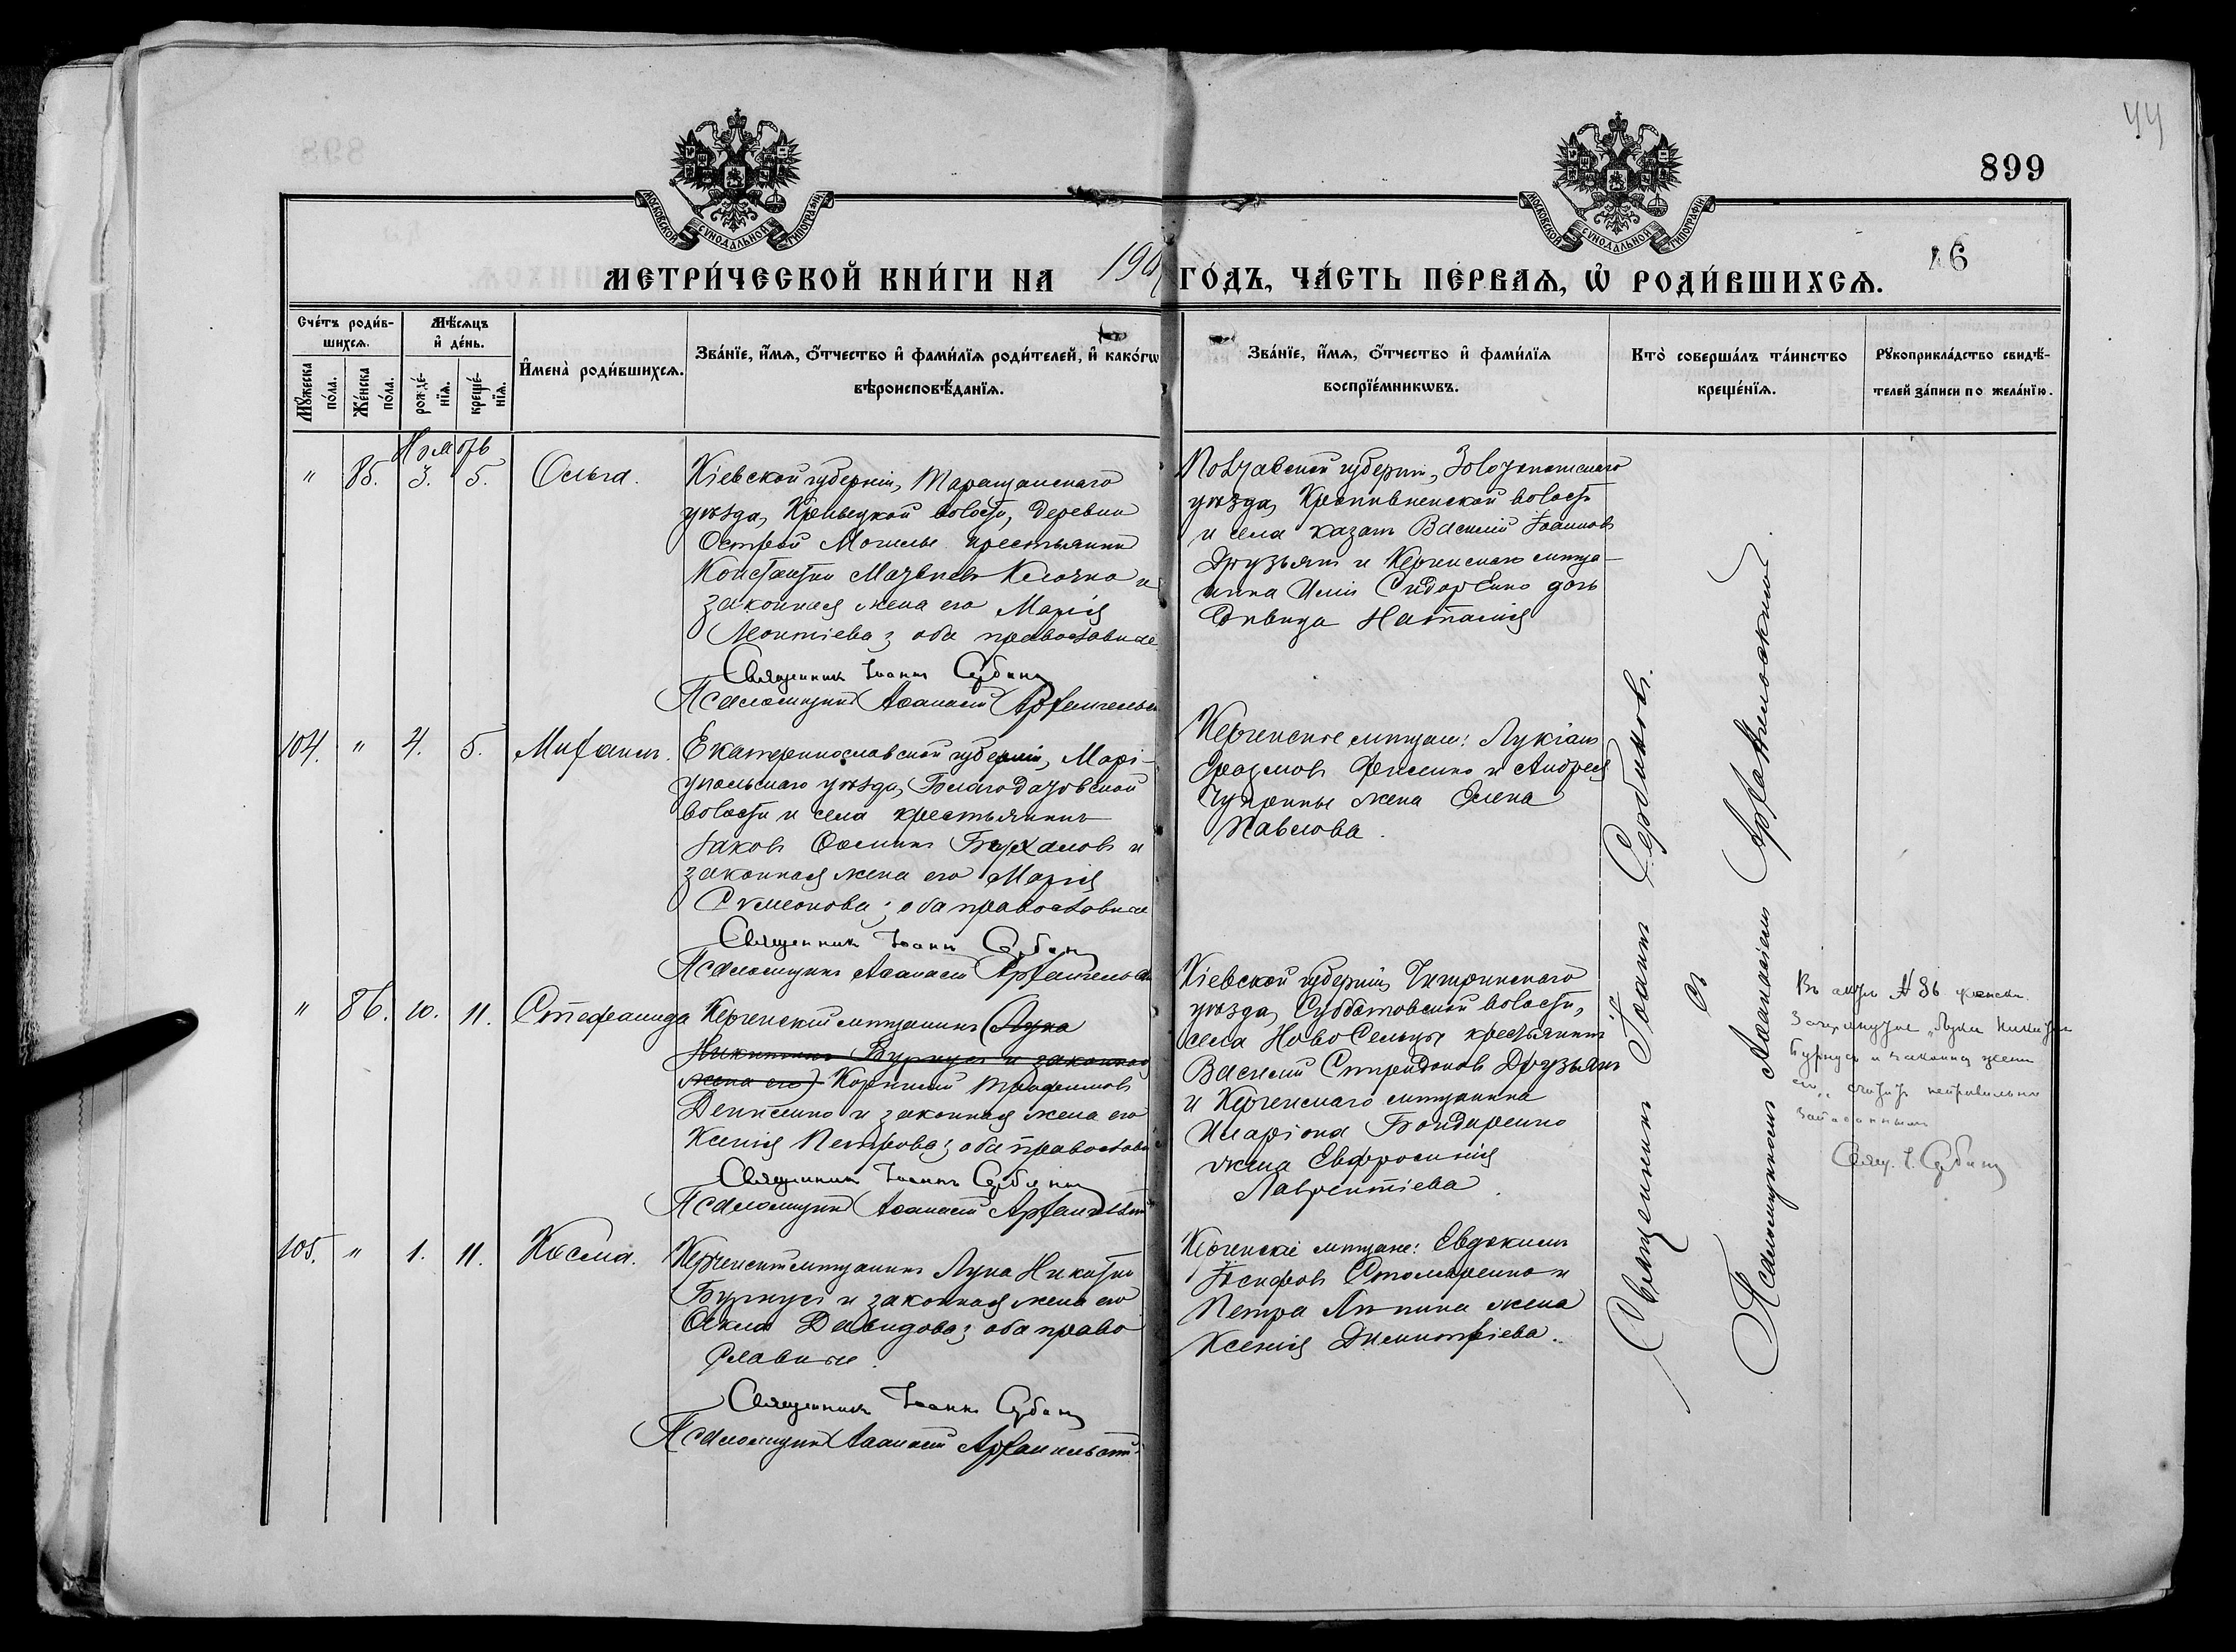 44
899
МОСКОВСКОЙ СУНОДАЛЬНОЙ ТИПОГРАФІИ
МОСКОВСКОЙ СУНОДАЛЬНОЙ ТИПОГРАФІИ
46
МЕТРИ́ЧЕСКОЙ КНИ́ГИ НА 190 ГО́ДЪ, ЧА́СТЬ ПЕ́РВАѦ, Ѡ҆ РОДИ́ВШИХСѦ.
Сче́тъ роди́в-
шихсѧ.
Мꙋ́жеска по́ла.
Же́нска по́ла.
Мѣ́сѧцъ
и҆ де́нь.
рожде́-
нїѧ.
креще́-
нїѧ.
И҆мена̀ роди́вшихсѧ.
Зва́нїе, и҆́мѧ, о҆́тчество и҆ фами́лїѧ роди́телей, и҆ како́гѡ
вѣроисповѣ́данїѧ.
Зва́нїе, и҆́мѧ, о҆́тчество и҆ фами́лїѧ
воспрїе́мникѡвъ.
Кто̀ соверша́лъ та́инство
креще́нїѧ.
Рꙋкоприкла́дство свидѣ́-
телей за́писи по жела́нїю.
Ноябрь
" 85. 3. 5. Ольга.
Кіевской губерніи, Таращанскаго
уѣзда, волости, деревни
Острой Могилы крестьянинъ
Константинъ Матвѣевъ Клочко и
законная жена его Марія
Леонтіева; оба православные
Священникъ Іоаннъ Сербиновъ
Псаломщикъ Аѳанасій Архангельскій
Полтавской губерніи, Золотоношскаго
уѣзда, Кропивненской волости
и села казакъ Василій Іоанновъ
Друзьякъ и Керченскаго мѣща-
нина Иліи Сидоренко дочь
дѣвица Наталія
104. " 4. 5. Михаилъ.
Екатеринославской губерніи, Марі-
упольскаго уѣзда, Благодатовской
волости и села крестьянинъ
Іаковъ Ѳоминъ и
законная жена его Марія
Симеонова; оба православные
Священникъ Іоаннъ Сербиновъ
Псаломщикъ Аѳанасій Архангельскій
Керченскіе мѣщане: Лукіанъ
и Андрея
жена Елена
Павлова.
" 86. 10. 11. Стефанида
Керченскій мѣщанинъ (Лука
Никитинъ Бурнусъ и законная
жена его) Корнилій Трофимовъ
Денисенко и законная жена его
Ксенія Петрова; оба православн
Священникъ Іоаннъ Сербиновъ
Псаломщикъ Аѳанасій Архангельскій
Кіевской губерніи, Чигиринскаго
уѣзда, Субботовской волости,
села Ново Сельцы крестьянинъ
Василій Спиридоновъ Друзьякъ
и Керченскаго мѣщанина
Иларіона Бондаренко
жена Евфросинія
Лаврентіева.
Въ актѣ № 86 женск.
Зачеркнутое „Лука Никитинъ
Бурнусъ и законная жена
его„ считать неправильно
записаннымъ
Свящ. І. Сербиновъ
105. " 1. 11. Косма.
Керченскій мѣщанинъ Лука Никитинъ
Бурнусъ и законная жена его
Ѳекла Давидова; оба право
славные.
Священникъ Іоаннъ Сербиновъ
Псаломщикъ Аѳанасій Архангельскій
Керченскіе мѣщане: Евдокимъ
Іосифовъ Столяренко и
Петра Ляпина жена
Ксенія Димитріева.
Священникъ Іоаннъ Сербиновъ.
съ
Псаломщикомъ Аѳанасіемъ Архангельскимъ.